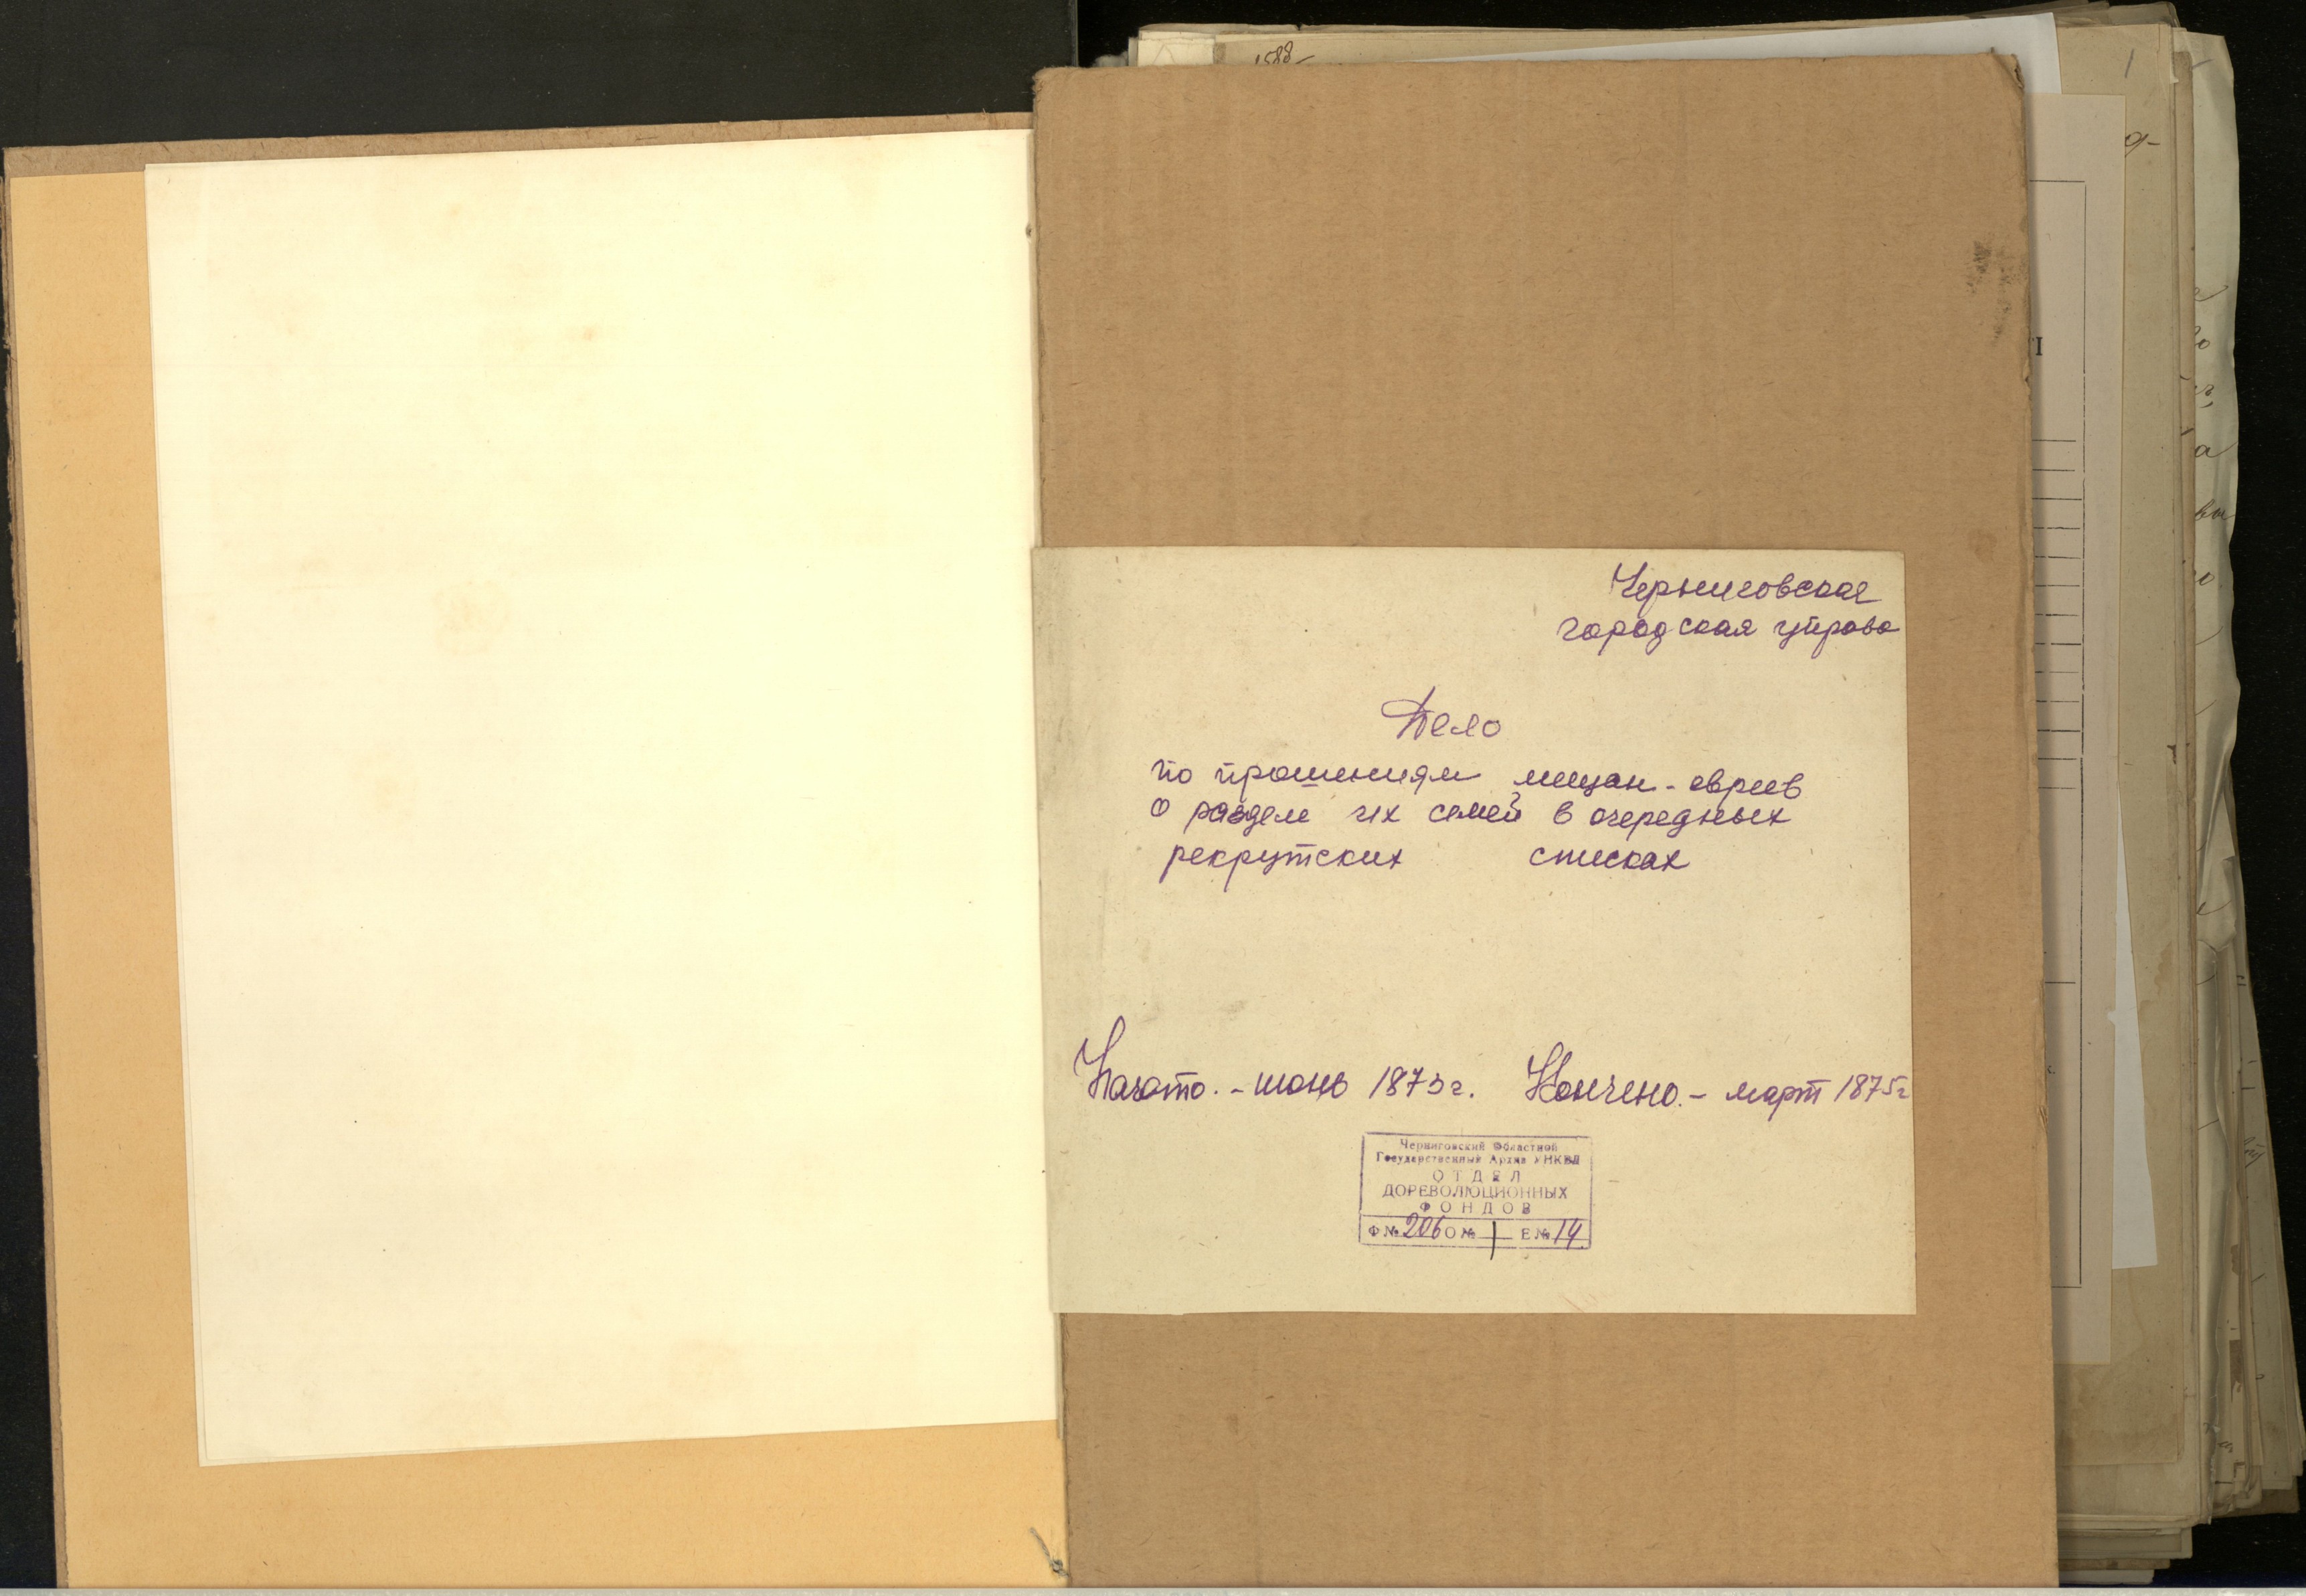 1588
1
Черниговская
городская управа
Дело
по прошениям мещан-евреев
о разделе их семей в очередных
рекрутских списках
Начато. - июнь 1873 г. Кончено. - март 1875 г
Черниговский Областной
Государственный Архив УНКВД
ОТДЕЛ
ДОРЕВОЛЮЦИОННЫХ
ФОНДОВ
Ф № 206 О № 1 Е № 14